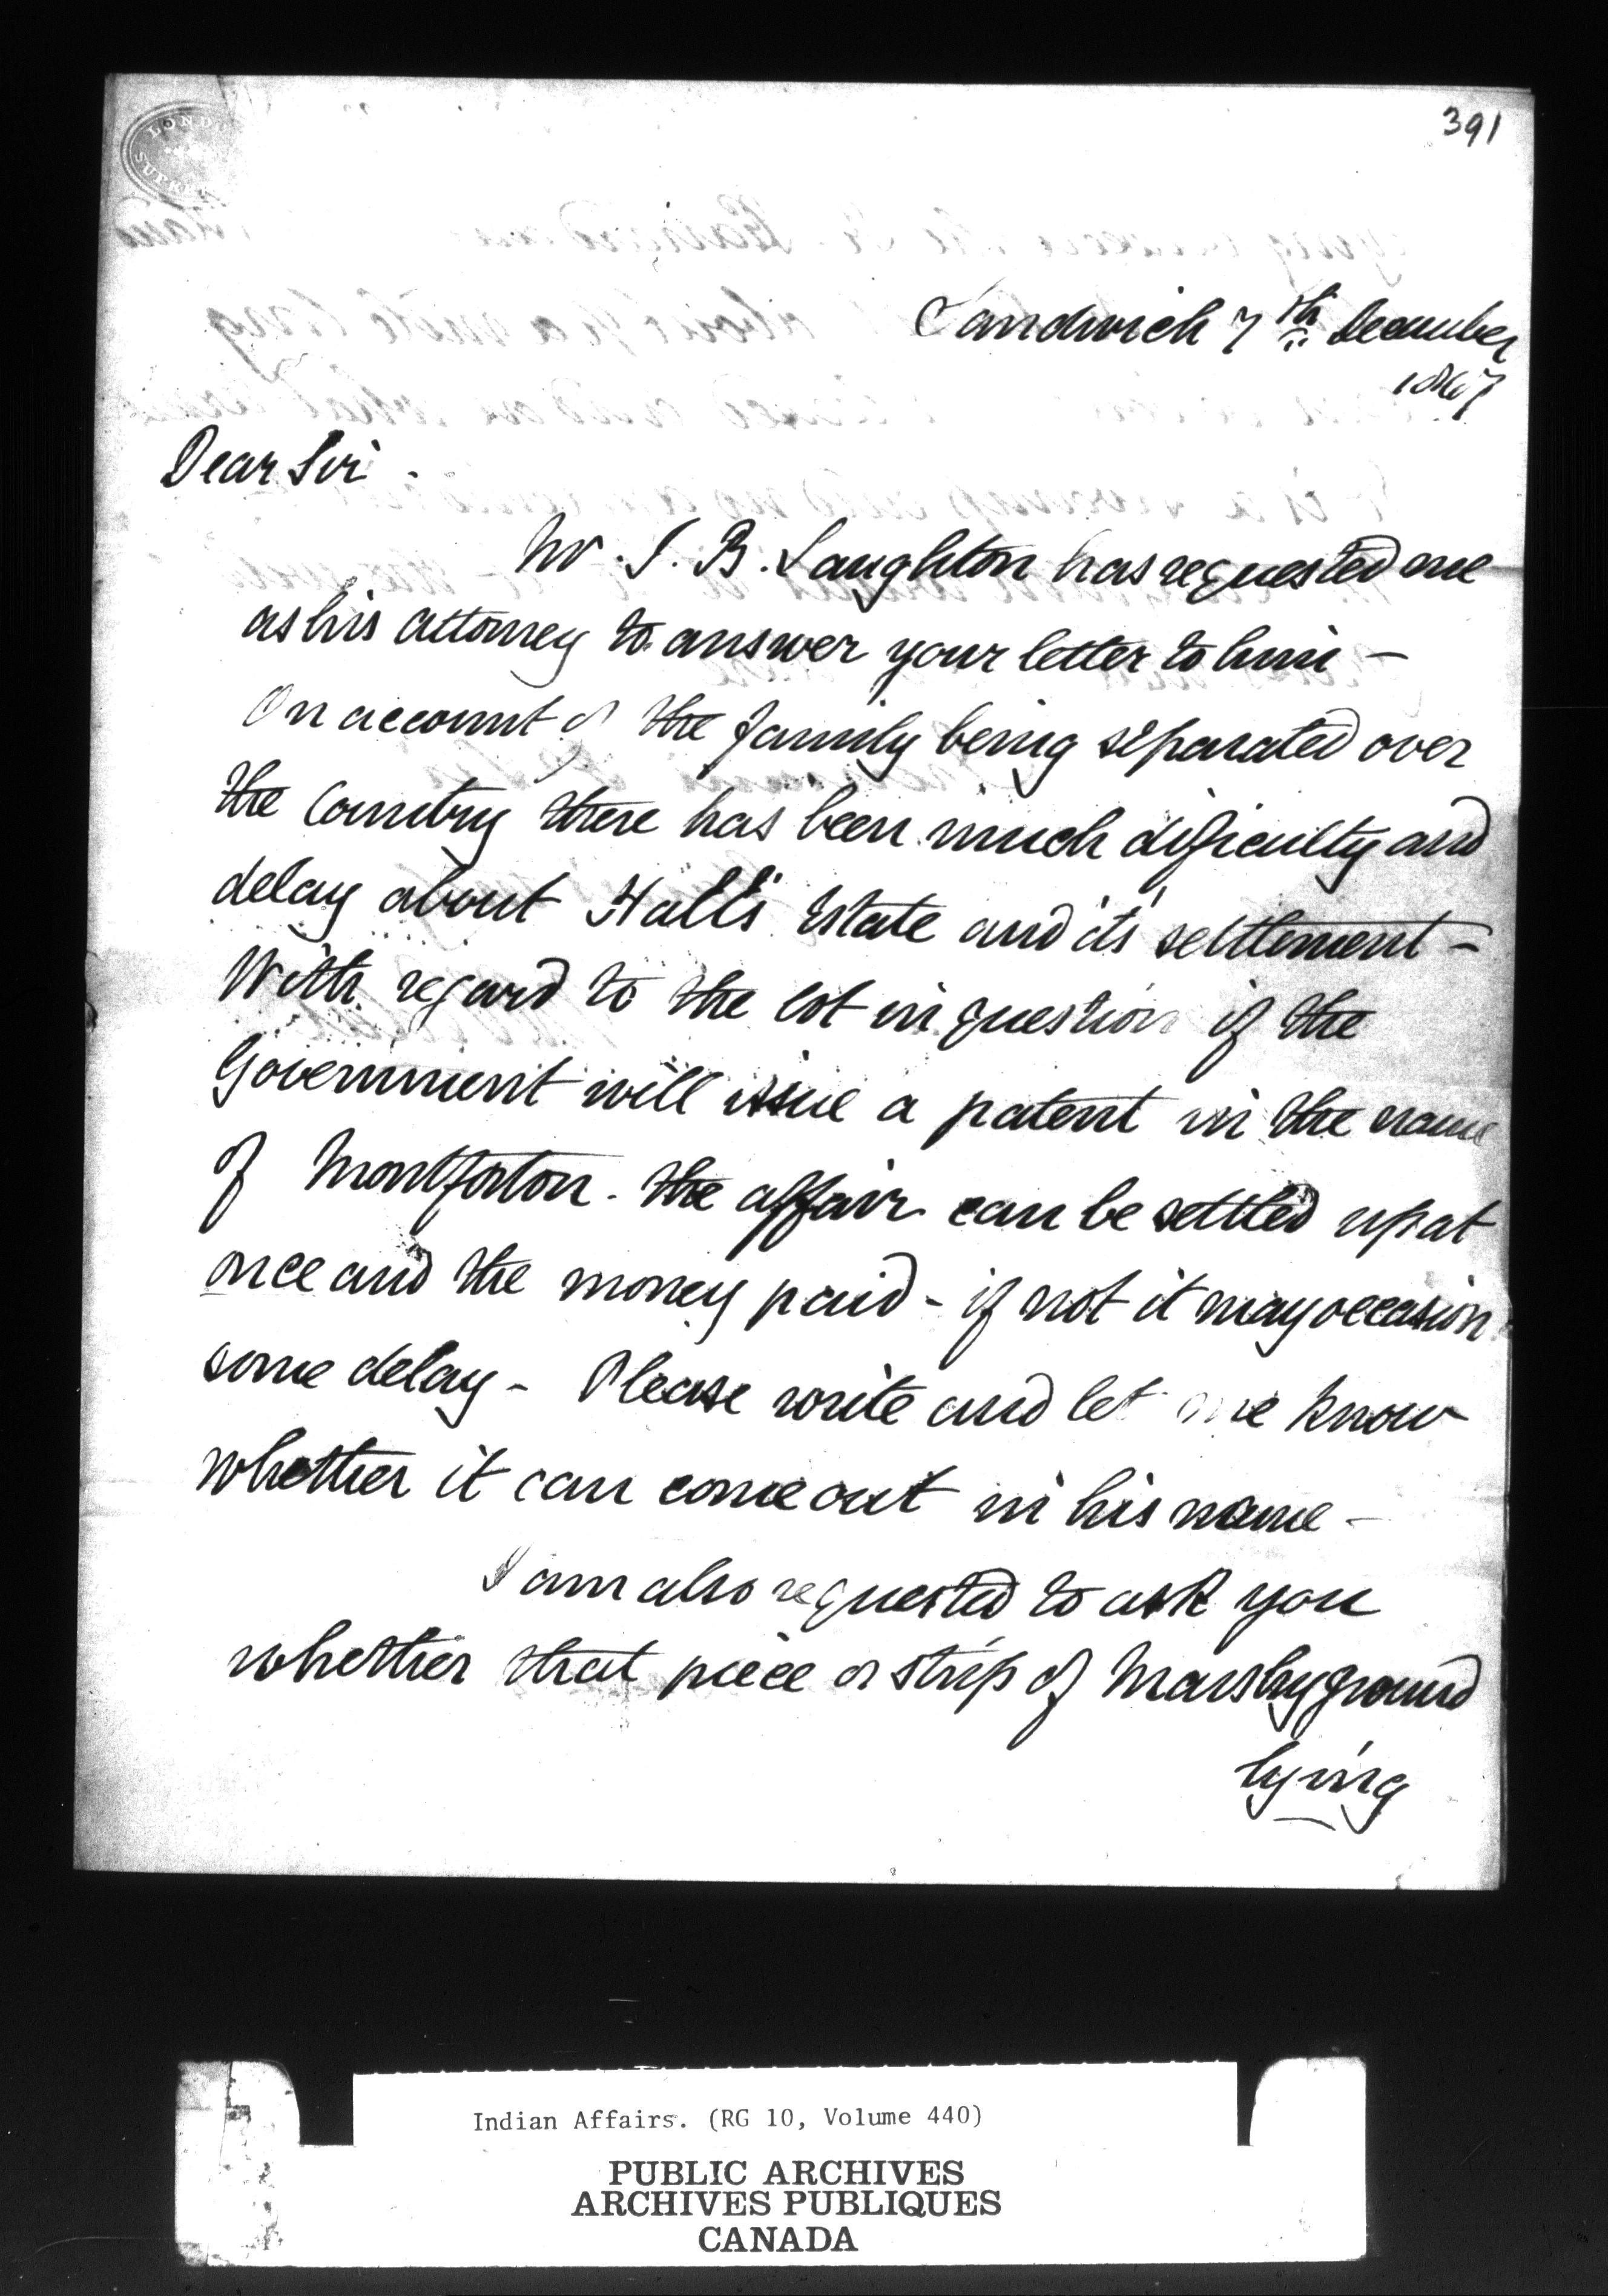 391
LONDO
SUPER
Sandwich 7th December
1867
Dear Sir
Mr. J. B. Laughton has requested me
as his attorney to answer your letter to him -
On account of the family being separated over
the Country there has been much difficulty and
delay about Hall's Estate and its settlement -
With regard to the lot in question if the
Government will issue a patent in the name
of Montforton. the affair can be settled up at
once and the money paid - if not it may occasion
some delay - Please write and let me know
whether it can come out in his name -
I am also requested to ask you
whether that piece or strip of Marshy ground
lying
Indian Affairs. (RG 10, Volume 440)
PUBLIC ARCHIVES
ARCHIVES PUBLIQUES
CANADA